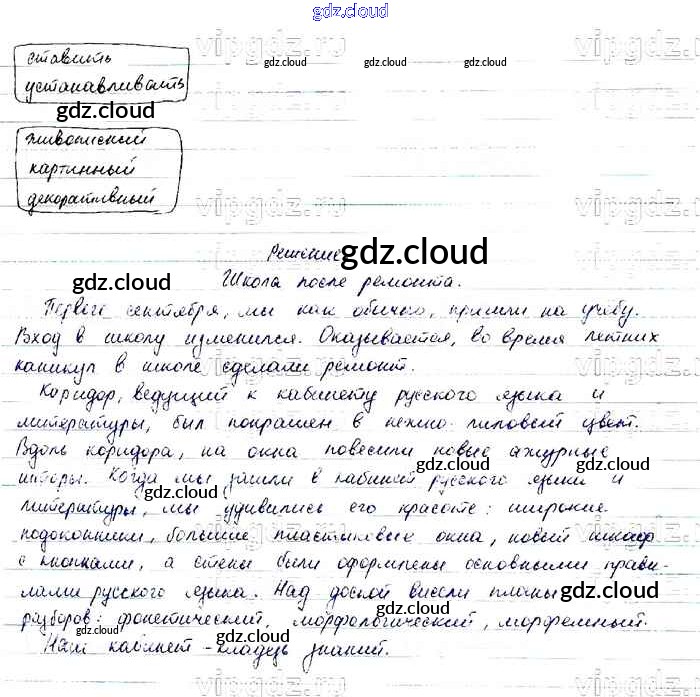 gdz.cloud
vipgdz.ru
ставить
устанавливать
gdz.cloud gdz.cloud gdz.cloud
gdz.cloud
живописный
картинный
декоративный
Решение
gdz.cloud
Школа после ремонта.
Первое сентября, мы как обычно, пришли на учёбу.
Вход в школу изменился. Оказывается, во время летних
каникул в школе сделали ремонт.
Коридор, ведущий к кабинету русского языка и
литературы, был покрашен в нежно-лиловый цвет.
Вдоль коридора, на окна повесили новые ажурные
шторы. Когда мы зашли в кабинет русского языка и
литературы, мы удивились его красоте: широкие
подоконники, большие пластиковые окна, новый шкаф
с книжками, а стены были оформлены основными прави-
лами русского языка. Над доской висели планы
разборов: фонетический, морфологический, морфемный.
Наш кабинет - кладезь знаний.